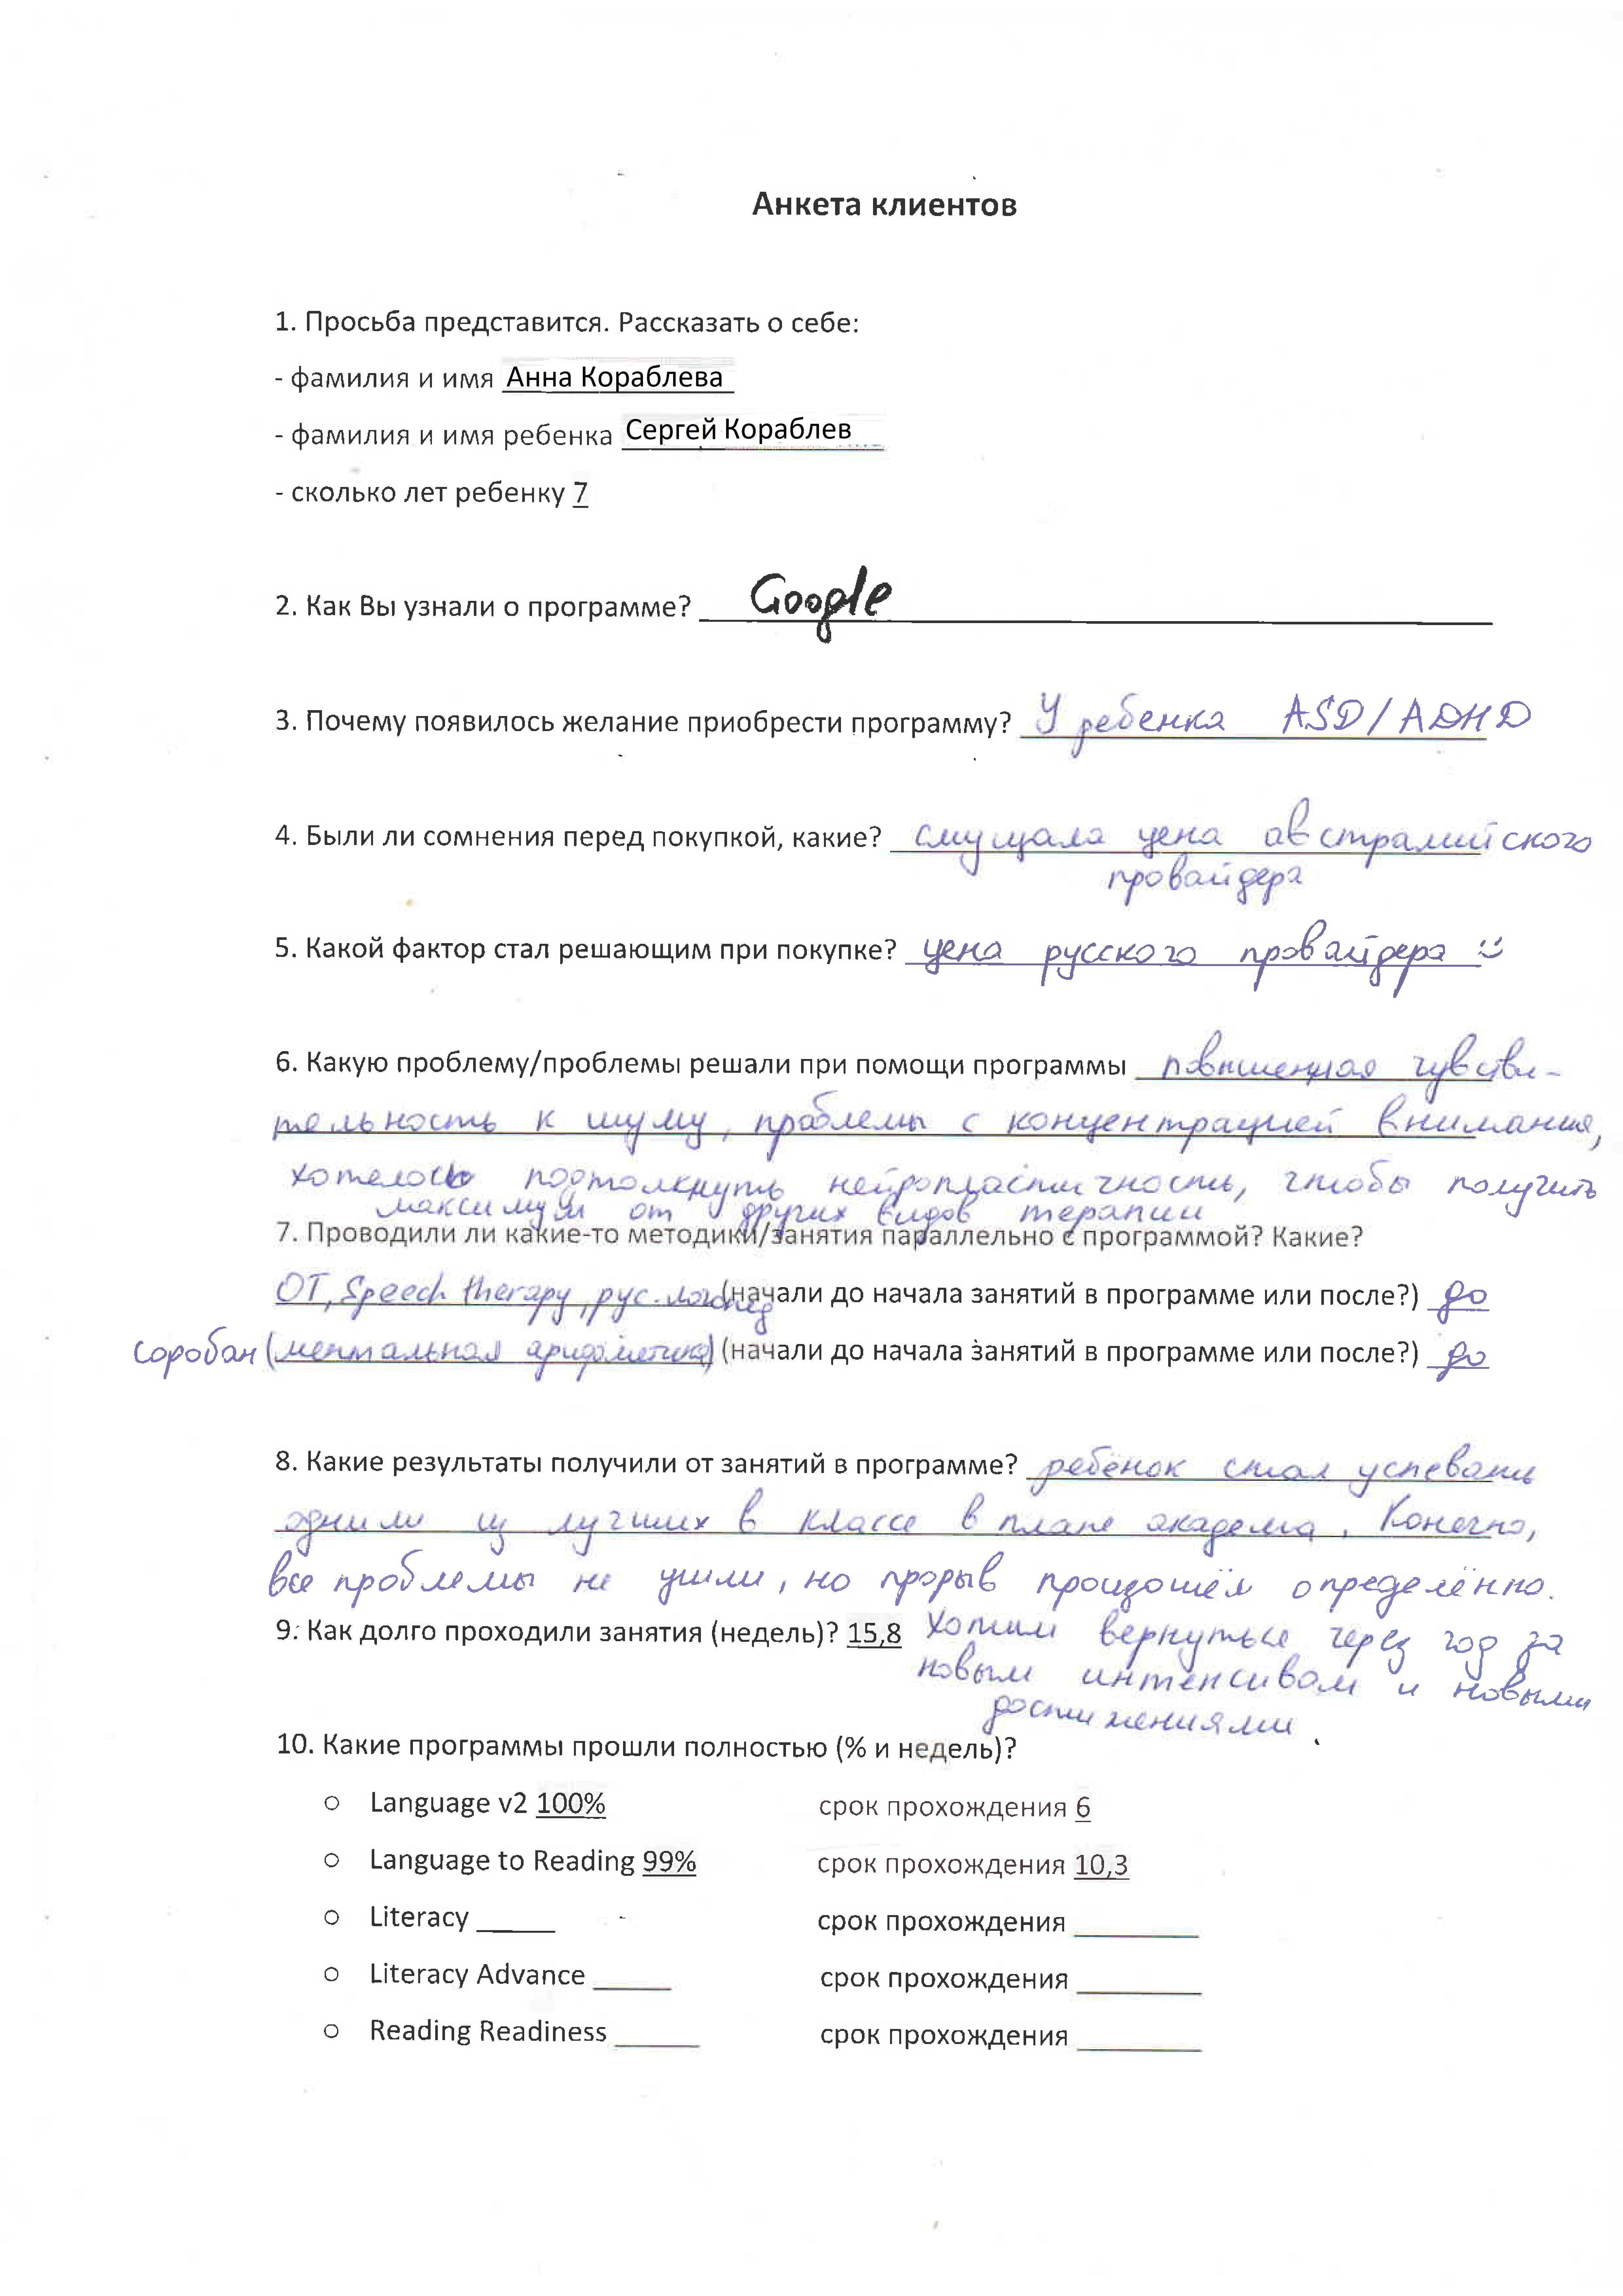 Анкета клиентов
1. Просьба представится. Рассказать о себе:
- фамилия и имя Анна Кораблева
- фамилия и имя ребенка Сергей Кораблев
- сколько лет ребенку 7
2. Как Вы узнали о программе? Google
3. Почему появилось желание приобрести программу? У ребенка ASD/ADHD
4. Были ли сомнения перед покупкой, какие? смущала цена австралийского
провайдера
5. Какой фактор стал решающим при покупке? цена русского провайдера :)
6. Какую проблему/проблемы решали при помощи программы повышенная чувстви-
тельность к шуму, проблемы с концентрацией внимания,
хотелось подтолкнуть нейропластичность, чтобы получить
максимум от других видов терапии
7. Проводили ли какие-то методики/занятия параллельно с программой? Какие?
ОТ, Speech therapy, рус. логопед (начали до начала занятий в программе или после?) до
соробан (ментальная арифметика) (начали до начала занятий в программе или после?) до
8. Какие результаты получили от занятий в программе? ребёнок стал успевать
одним из лучших в классе в плане академиа. Конечно,
все проблемы не ушли, но прорыв произошёл определённо.
9. Как долго проходили занятия (недель)? 15,8 Хотим вернуться через год за
новым интенсивом и новыми
достижениями
10. Какие программы прошли полностью (% и недель)?
○ Language v2 100% срок прохождения 6
○ Language to Reading 99% срок прохождения 10,3
○ Literacy _____ срок прохождения ________
○ Literacy Advance _____ срок прохождения ________
○ Reading Readiness _____ срок прохождения ________